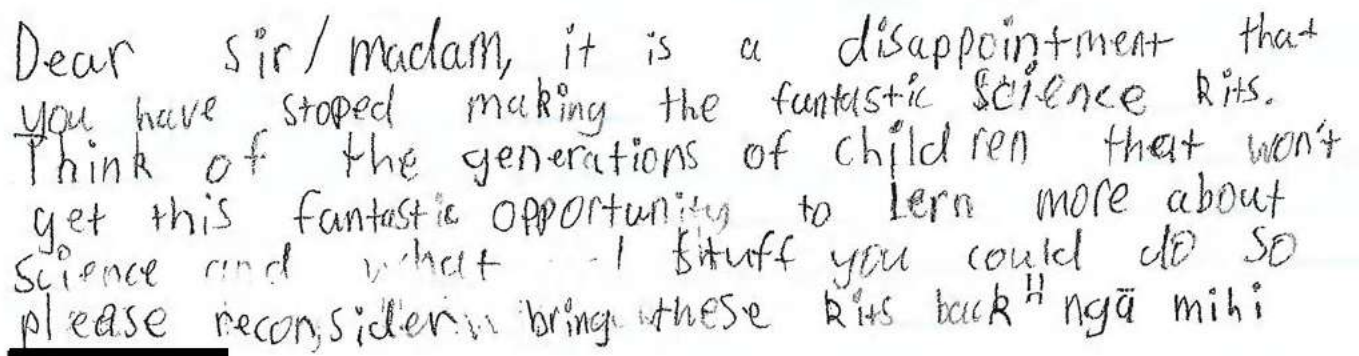 Dear sir/madam, it is a disappointment that
you have stoped making the fantastic science kits.
Think of the generations of children that won't
get this fantastic opportunity to lern more about
science and what stuff you could do so
please reconsider bring these kits back!! ngā mihi